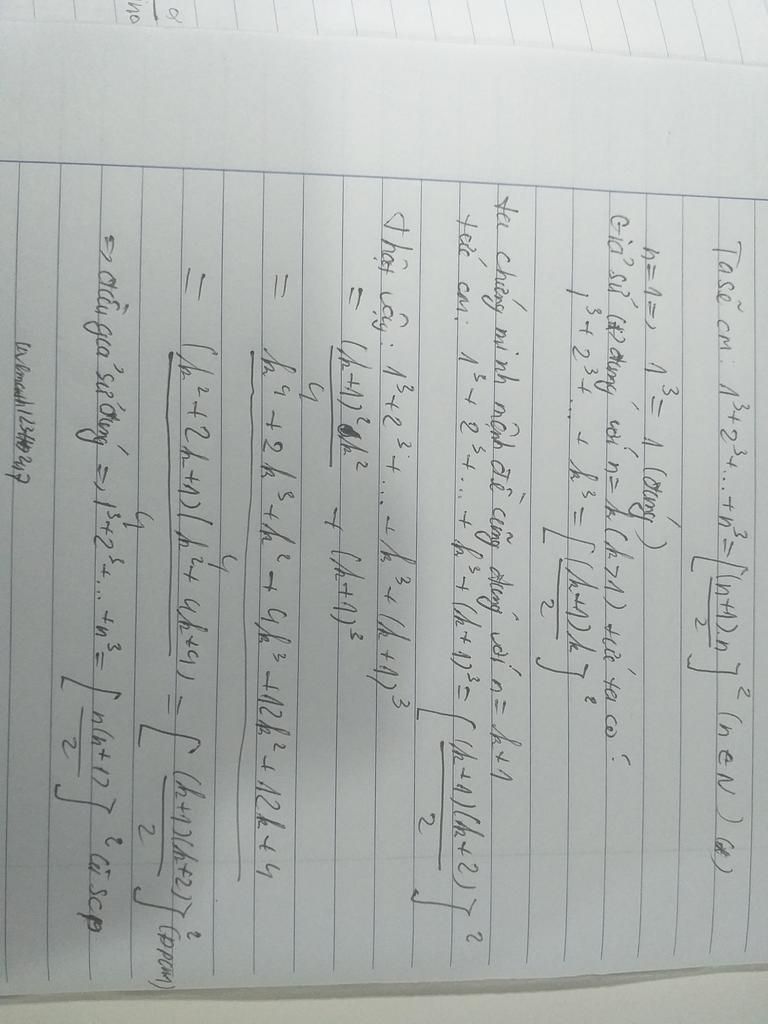 Ta sẽ cm: 1³+2³+...+n³ = [(n+1).n/2]² (n∈N) (*)
n=1 => 1³ = 1 (đúng)
Giả sử (*) đúng với n=k (k>1) tức ta có:
1³+2³+...+k³ = [(k+1)k/2]²
ta chứng minh mệnh đề cũng đúng với n=k+1
tức cm: 1³+2³+...+k³+(k+1)³ = [(k+1)(k+2)/2]²
Thật vậy: 1³+2³+...+k³+(k+1)³
= (k+1)²k²/4 + (k+1)³
= k⁴+2k³+k²+4k³+12k²+12k+4/4
= (k²+2k+1)(k²+4k+4)/4 = [(k+1)(k+2)/2]² (đpcm)
=> điều giả sử đúng => 1³+2³+...+n³ = [n(n+1)/2]² là scp